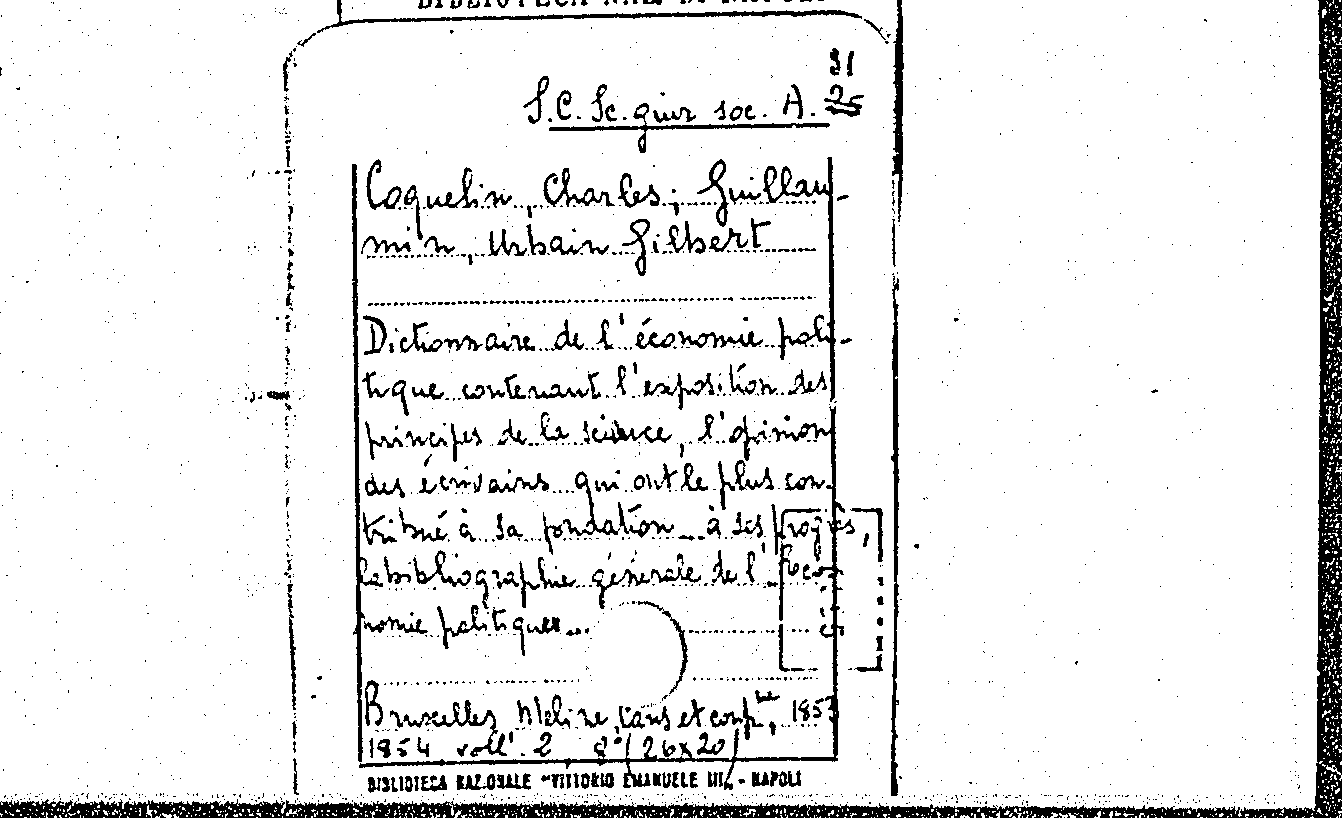 BIBLIOTECA NAZ. DI NAPOLI
S.C. Sc. giur soc. A. 31
25
Coquelin, Charles; Guillau-
min, Urbain Gilbert
Dictionnaire de l'économie poli-
tique contenant l'exposition des
principes de la science, l'opinion
des écrivains qui ont le plus con-
tribué à sa fondation à ses progrès,
la bibliographie générale de l'
nomie politique...
Bruxelles, Meline, Cans et comp.
1853
1854 voll. 2 8° (26x20)
BIBLIOTECA NAZIONALE "VITTORIO EMANUELE III" - NAPOLI